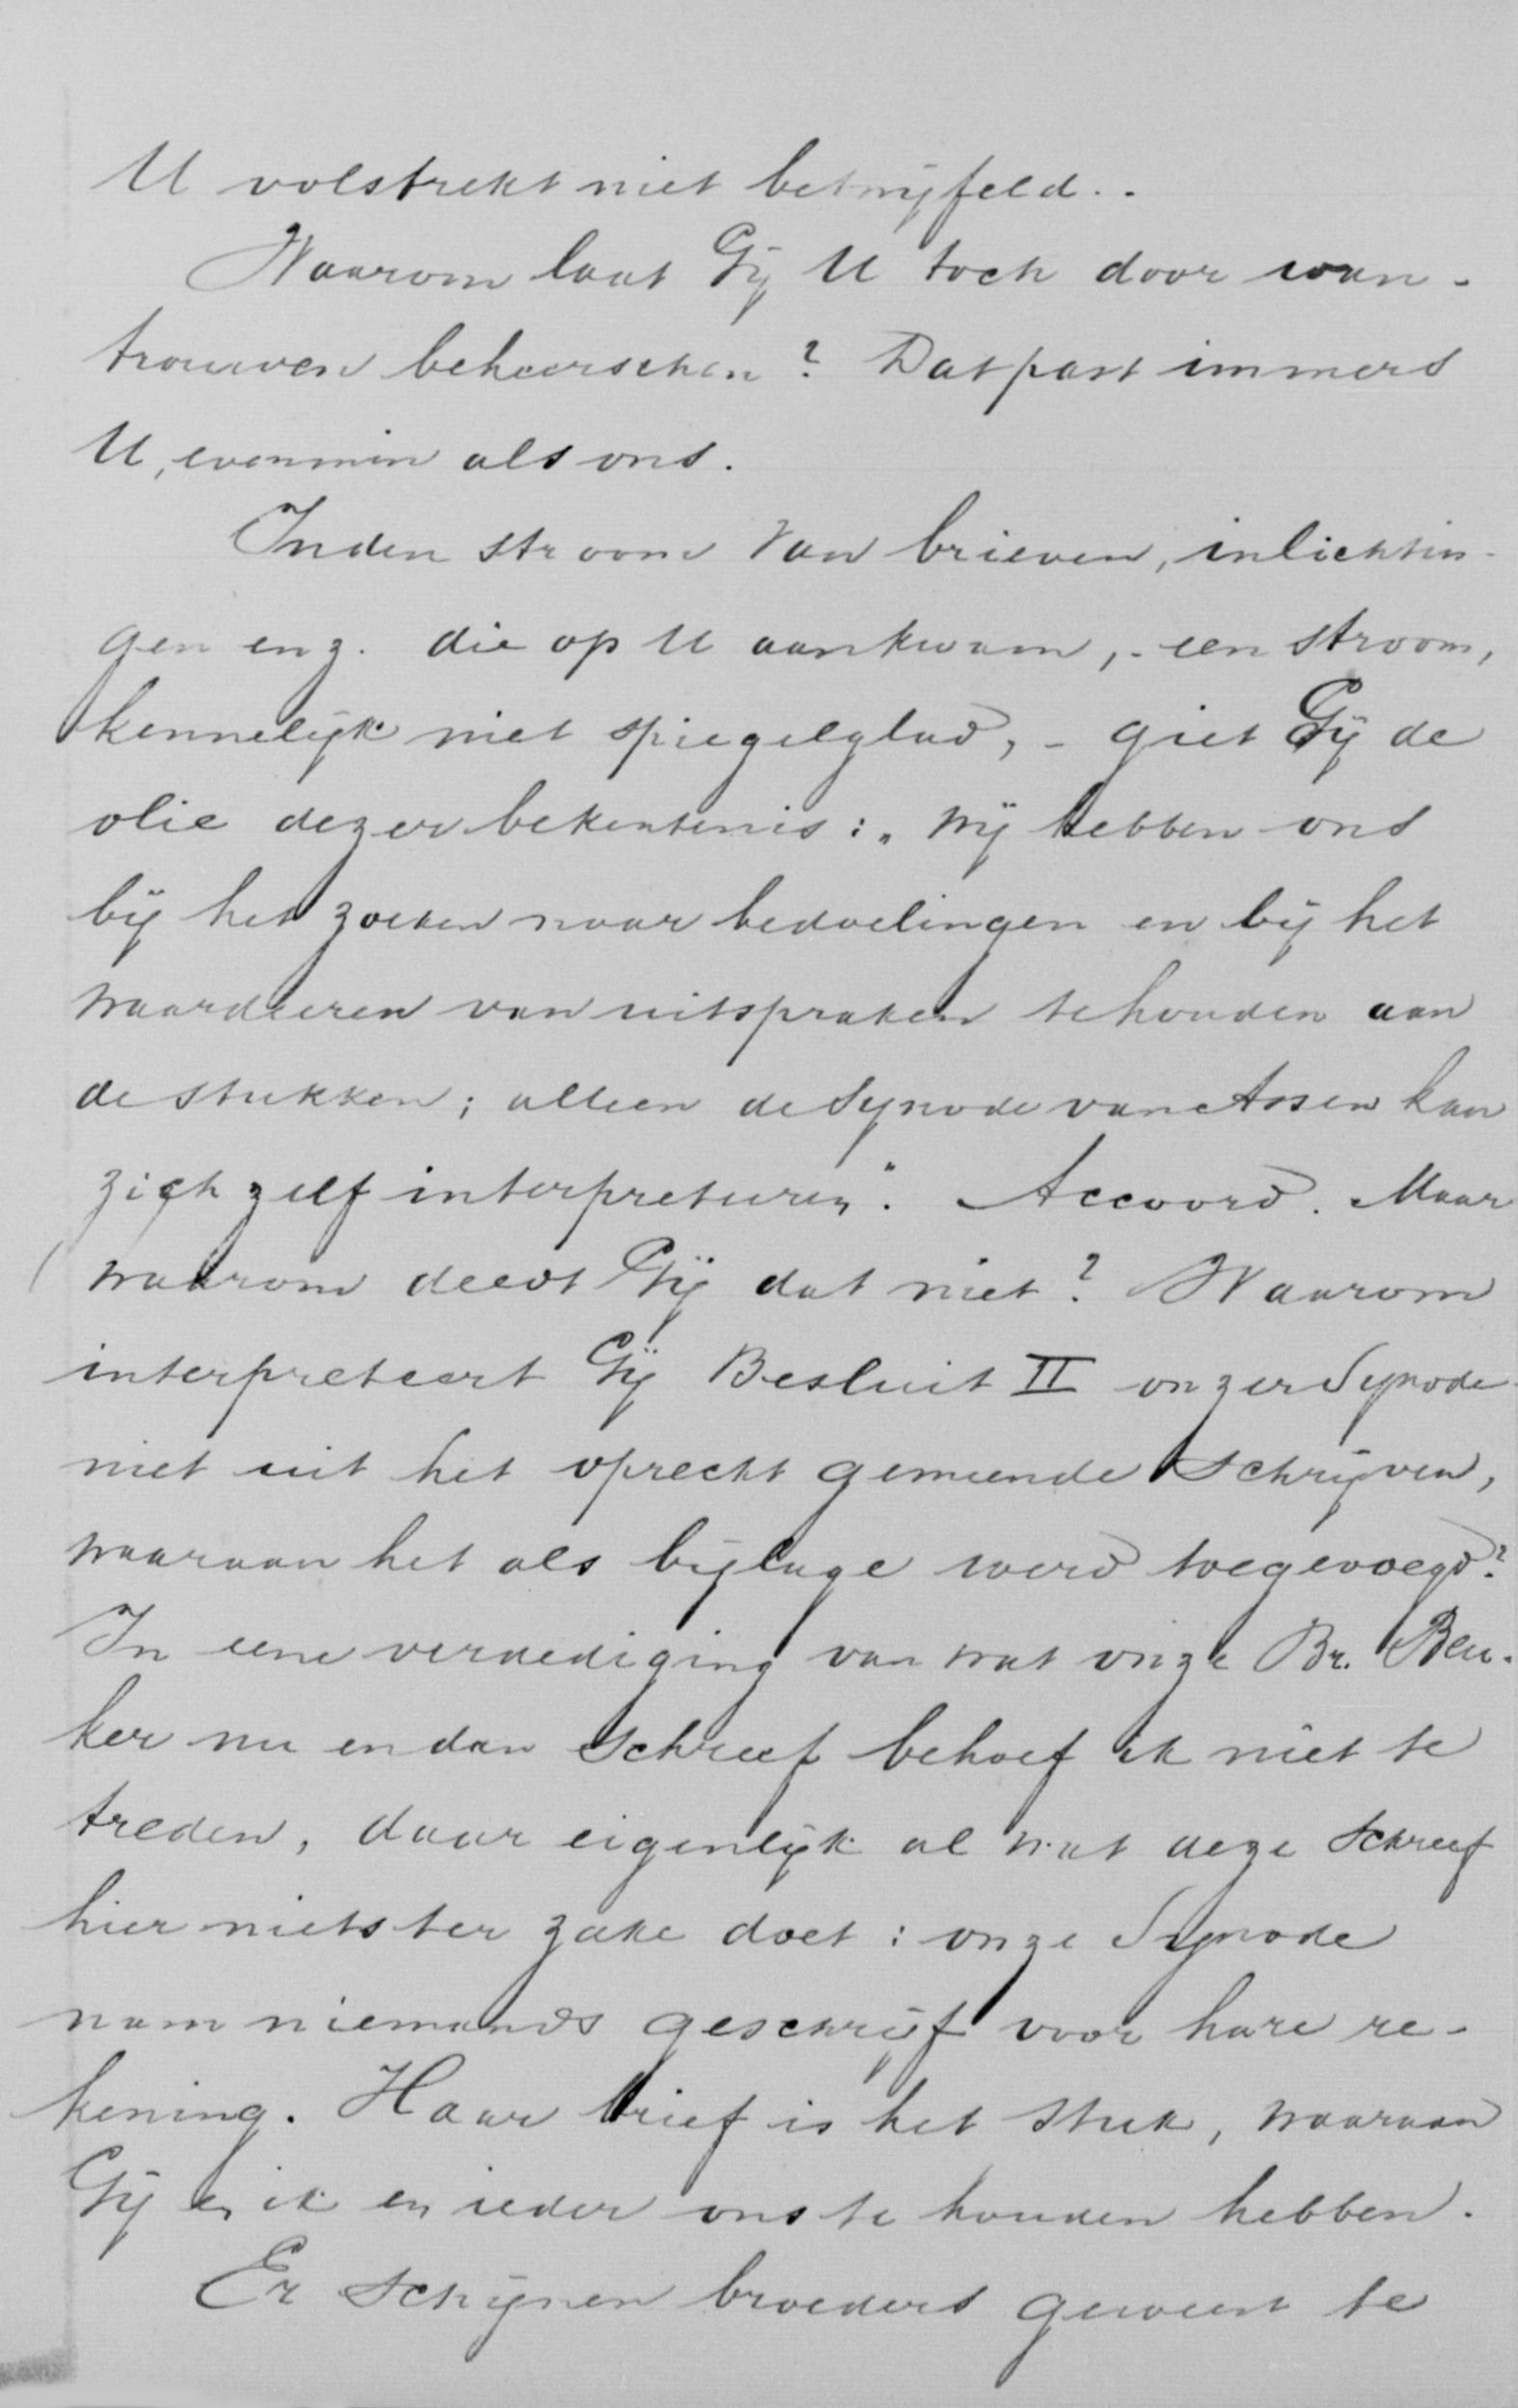 U volstrekt niet betwijfeld..
Waarom laat Gij U toch door wan-
trouwen beheerschen? Dat past immers
U, evenmin als ons.
In den stroom van brieven, inlichtin-
gen enz. die op U aankwam, - een stroom,
kennelijk niet spiegelglad, - giet Gij de
olie dezer bekentenis: „Wij hebben ons
bij het zoeken naar bedoelingen en bij het
waardeeren van uitspraken te houden aan
de stukken; alleen de Synode van Assen kan
zich zelf interpreteeren". Accoord. Maar
waarom deedt Gij dat niet? Waarom
interpreteert Gij Besluit II onzer Synode
niet uit het oprecht gemeende schrijven,
waaraan het als bijlage werd toegevoegd?
In eene verdediging van wat onze Br. Beu-
ker nu en dan schreef behoef ik niet te
treden, daar eigenlijk al wat deze schreef
hier niets ter zake doet: onze Synode
nam niemands geschrijf voor hare re-
kening. Haar brief is het stuk, waaraan
Gij en ik en ieder ons te houden hebben.
Er schijnen broeders geweest te